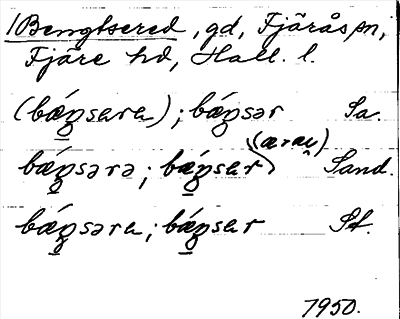 1 Bengtsered, gd, Fjärås sn,
Fjäre hd, Hall. l.
(bǽŋsara); bǽŋsər Sa.
bǽŋsərə; bǽŋsər (ərau) Sand.
bǽŋsəra; bǽŋsər St.
1950.